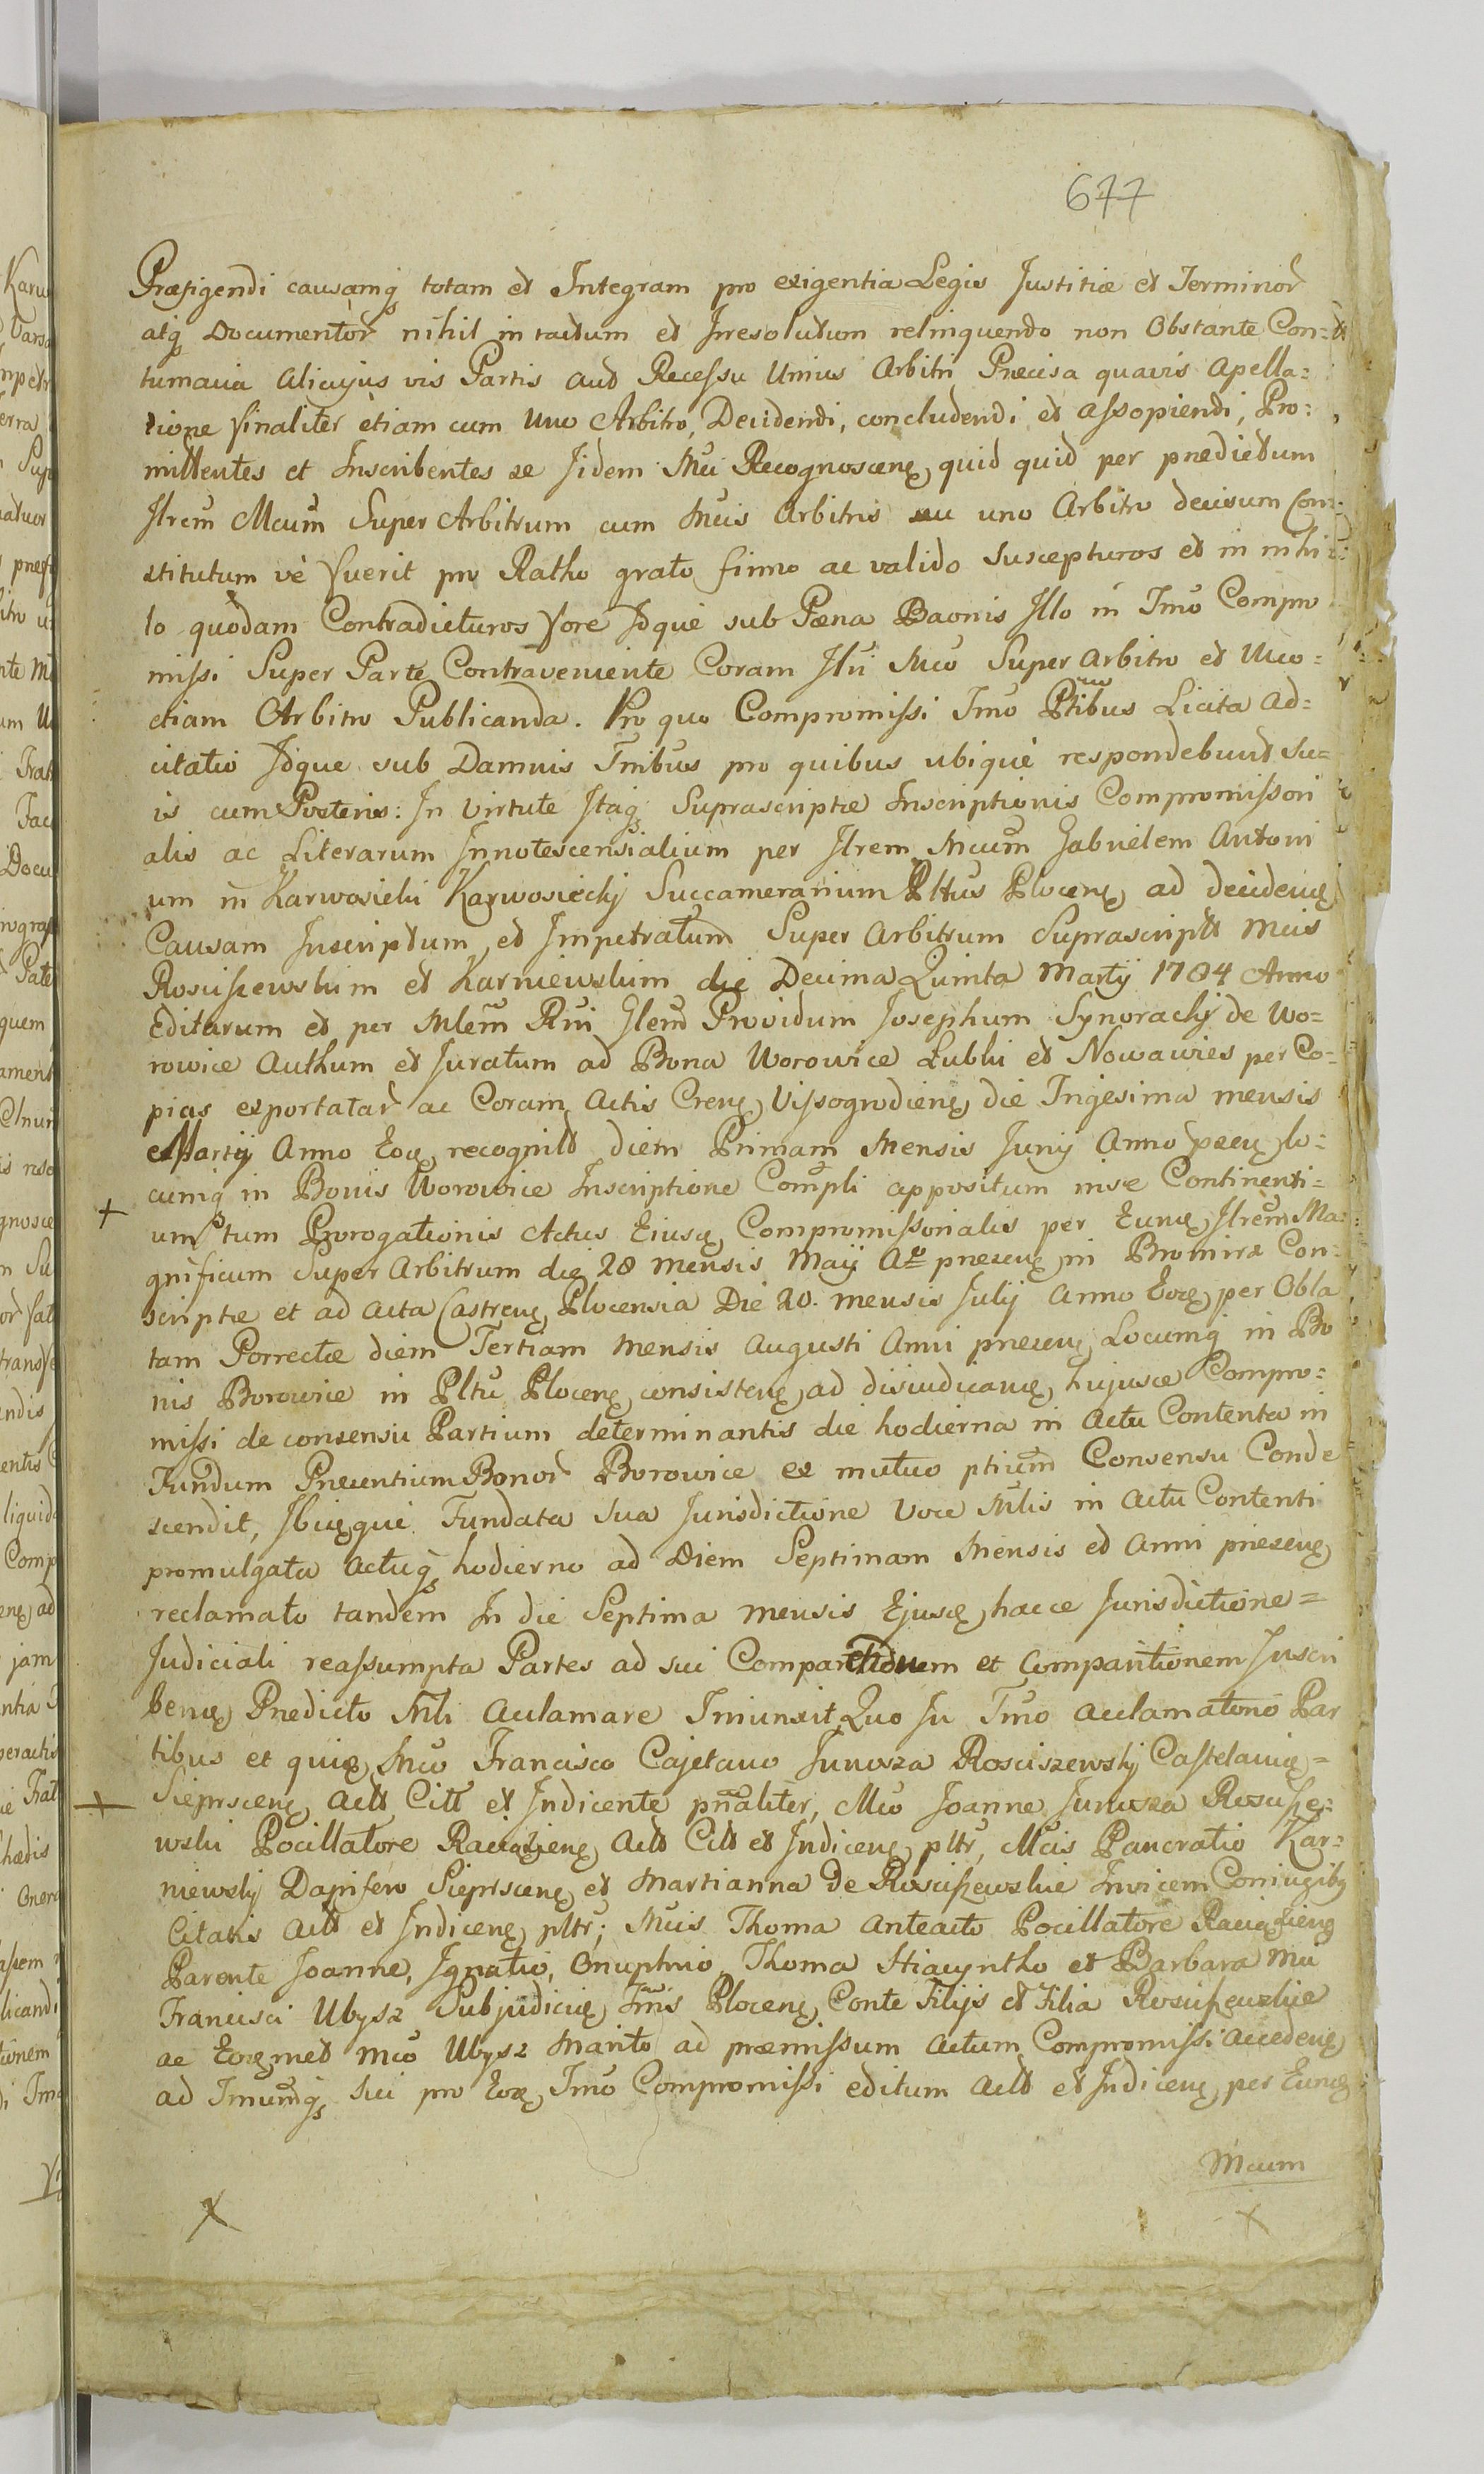 677
Præfigendi causamq totam et Integram pro exigentia Legis Justitiæ et Terminor
atq Documentor nihil in tactum et Irresolutum relinquendo non Obstante Con=
tumacia alicujus vis Partis aut Recessu Unius Arbitri Præcisa quavis apella=
tione finaliter etiam cum Uno Arbitro, Decidendi, concludendi et assopiendi, Pro=
mittentes et Inscribentes se Iidem Mci Recognoscen, quid quid per prædictum
Ilrem Mcum Super Arbitrum cum Mcis Arbitris seu uno Arbitro decisum Con=
stitutum vè fuerit pro Ratho grato firmo ac valido Suscepturos et in nihi=
lo quodam Contradicturos fore Idque sub Pæna Baonis Illo in Tmo Compro
missi Super Parte Contraveniente Coram Ilri Mco Super Arbitro et Uno=
etiam Arbitro Publicanda. Pro quo Compromissi Tmo Ptibus Licita ad=
citatio Idque sub Damnis Tribus pro quibus ubique respondebunt Su=
is cum Posteris: In Virtute Itaq Suprascriptæ Inscriptionis Compromissori
alis ac Literarum Innotescensialium per Ilrem Mcum Gabrielem Antoni
um in Karwosieki Karwosiecky Succamerarium Pltus Plocen, ad deciden
Causam Inscriptum et Impetratum Super Arbitrum Suprascript Mcis
Rosciszewskim et Karniewskim die Decima Quinta Martij 1784 Anno
Editarum et per Mlem Rni Glem Providum Josephum Synoracky de Wo=
rowice Authum et Juratum ad Bona Worowice Lubki et Nowawies per Co=
pias exportatar ac Coram Actis Cren, Vissogrodien, die Trigesima mensis
Martij Anno Eo recognit diem Primam Mensis Junij Anno præn, lo=
cumq in Bonis Worowice Inscriptione Compli appositum inse Continenti=
um tum Prorogationis Actus Eius Compromissorialis per Eun, Ilrem Ma=
gnificum Super Arbitrum die 28 mensis Maij A præsen, in Bromirz Con=
scriptæ et ad acta Castren, Plocensia Die 20. mensis Julij Anno Eo, per Obla
tam Porrectæ diem Tertiam mensis Augusti Anni præsen, Locumq in Bo
nis Borowice in Pltu Plocen, consisten, ad disiudican, hujusce Compro=
missi de consensu Partium determinantis die hodierna in actu Contenta in
Fundum Præsentium Bonor Borowice ex mutuo ptium Consensu Conde
scendit, Ibique Fundata Sua Jurisdictione Voce Mlis in actu Contenti
promulgata actuq hodierno ad Diem Septimam Mensis et Anni præsen,
reclamato tandem In die Septima mensis Ejus, hacce Jurisdictione=
Judiciali reassumpta Partes ad sui Comparitionem et Comparitionem Inscri
ben, Predicto Mli Acclamare Iniunxit Quo In Tmo acclamationo Par
tibus et qui Mco Francisco Cajetano Junosza Rosciszewsky Castelani=
Sieprscen, Act Citt et Indicente pnaliter, Mco Joanne Junosza Roscisze=
wski Pocillatore Raciązien, Act Citt et Indicen, pltr, Mcis Pancratio Kar=
niewsky Dapifero Sieprscen, et Martianna de Rosciszewskie Invicem Coniugib
Citatis Act et Indicen, pltr; Mcis Thoma anteacto Pocillatore Raciązien
Parente Joanne, Ignatio, Onuphrio, Thoma Hiacyntho et Barbara Mci
Francisci Ubysz Subjudici, Tris Plocen, Conte Filijs et Filia Rosciszewskie
ac Eo met Mco Ubysz Marito ad præmissum actum Compromissi acceden,
ad Tmumq sui pro Eo, Tmo Compromissi editum Act et Indicen, per Eun
Mcum